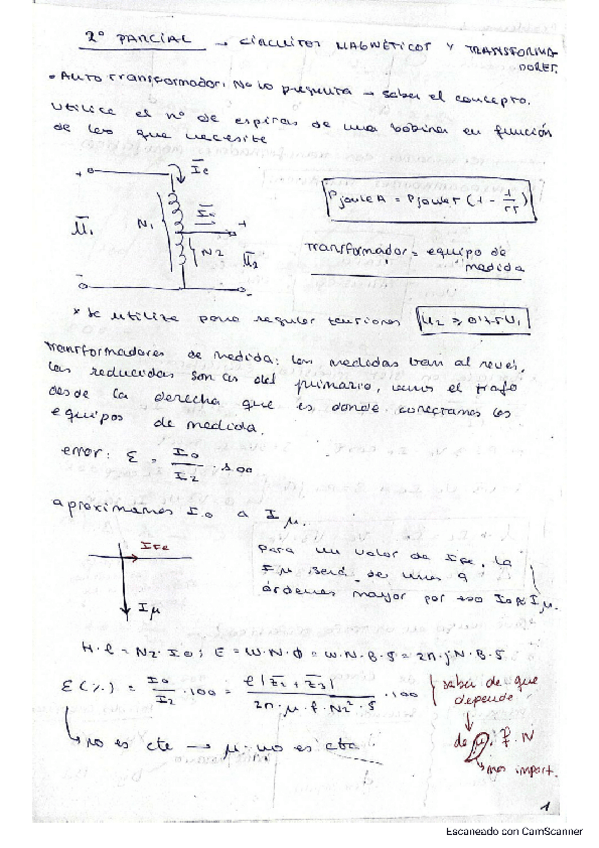 2º PARCIAL → CIRCUITOS MAGNÉTICOS Y TRANSFORMA-
DORES.
• Auto transformador: No lo pregunta → saber el concepto.
utiliza el nº de espiras de una bobina en función
de las que necesite
+
N1
N2
+
PjouleA = PjouleT (1 - 1/rT)
Transformador = equipo de
medida
* se utiliza para regular tensiones
Transformadores de medida: las medidas van al revés,
las reducidas son las del primario, vemos el trafo
desde la derecha que es donde conectamos los
equipos de medida.
error: ε = I0/I2 · 100
aproximamos I0 a Iμ.
IFe
Iμ
Para un valor de IFe, la
Iμ será de unas 9
órdenes mayor por eso I0≈Iμ.
H·l = N2·I0; E = W·N·Φ = W·N·B·S = 2π·f·N·B·S
ε(%) = I0/I2 · 100 = l|Z1 + Z3| / 2π·μ·f·N2²·S · 100
saber de que
depende.
de μ, f, N
mas import.
no es cte → μ: no es cte
1
Escaneado con CamScanner